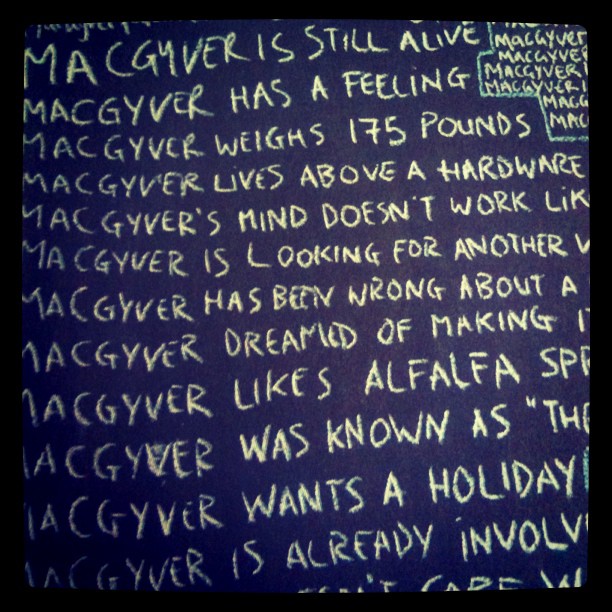 MACGYVER IS STILL ALIVE
MACGYVER HAS A FEELING
MACGYVER WEIGHS 175 POUNDS
MACGYVER LIVES ABOVE A HARDWARE
MACGYVER'S MIND DOESN'T WORK LIK
MACGYVER IS LOOKING FOR ANOTHER
MACGYVER HAS BEEN WRONG ABOUT A
MACGYVER DREAMED OF MAKING I
MACGYVER LIKES ALFALFA SPR
MACGYVER WAS KNOWN AS "THE
MACGYVER WANTS A HOLIDAY
MACGYVER IS ALREADY INVOLV
CARE
MACGYVER
MACGYVER
MACGYVER
MACGYVER
MACG
MAC